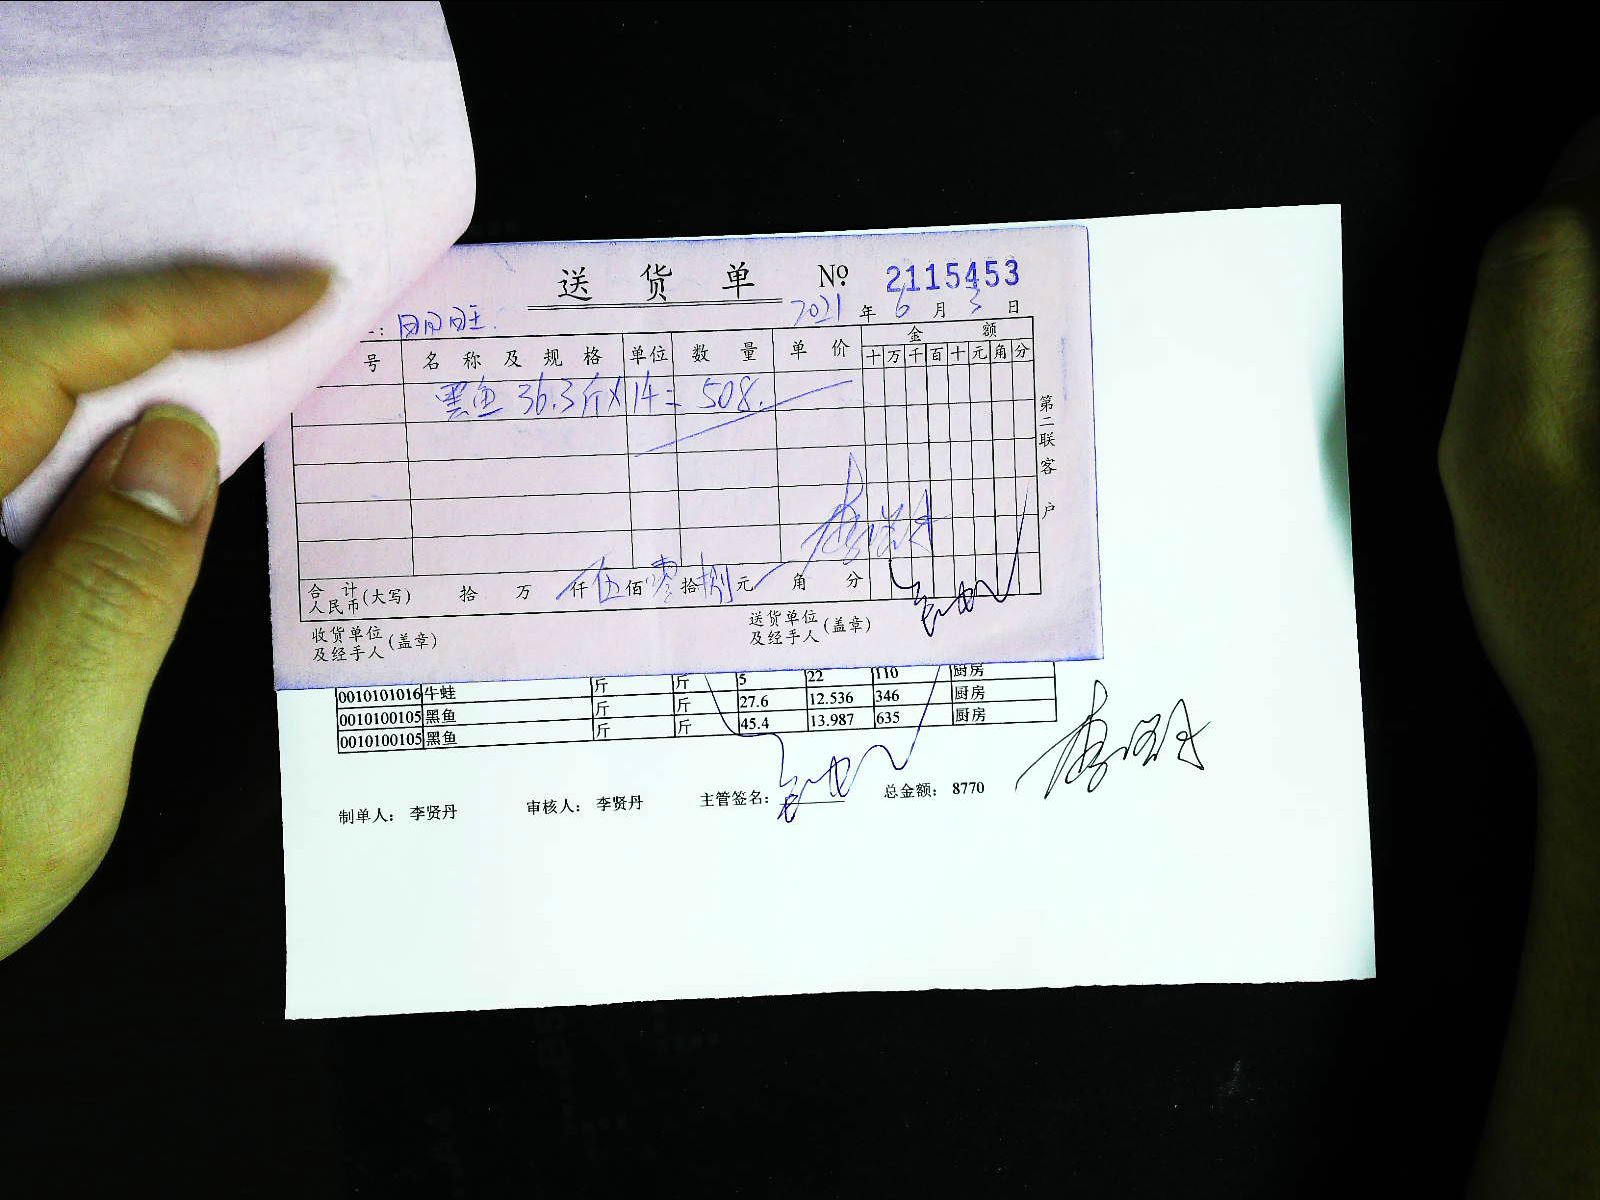 送 货 单 № 2115453
2021 年 6 月 3 日
号 名 称 及 规 格 单位 数 量 单 价 金 额
十 万 千 百 十 元 角 分
黑鱼 36.3斤×14= 508.
第二联 客 户
合 计 人民币(大写) 拾 万 仟 伍 佰 零 拾 捌 元 角 分
收货单位及经手人(盖章) 送货单位及经手人(盖章)
0010101016 牛蛙 斤 斤 5 22 110 厨房
0010100105 黑鱼 斤 斤 27.6 12.536 346 厨房
0010100105 黑鱼 斤 斤 45.4 13.987 635 厨房
制单人: 李贤丹 审核人: 李贤丹 主管签名: 总金额: 8770